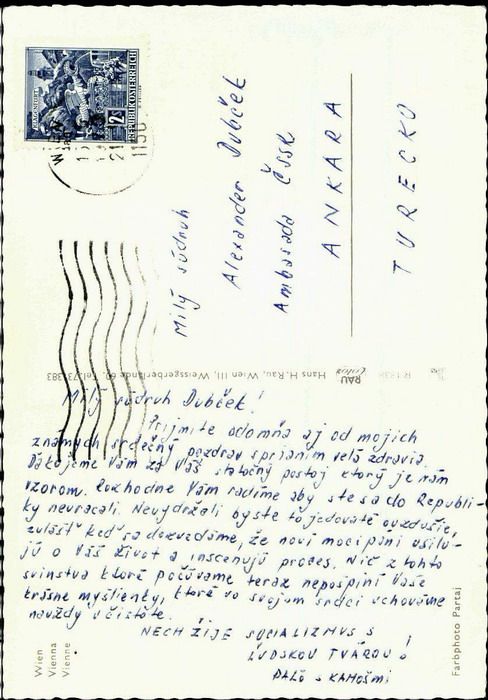 Milý súdruh
Alexander Dubček
Ambasáda ČSSR
ANKARA
TURECKO
2
REPUBLIK ÖSTERREICH
Hans H. Rau, Wien III, Weissgerberlände 60, Tel. 73 383
RAU
Milý súdruh Dubček!
Prijmite odomňa aj od mojich
známych srdečný pozdrav s prianím veľa zdravia.
Ďakujeme Vám za Váš statočný postoj ktorý je nám
vzorom. Rozhodne Vám radíme aby ste sa do Republi-
ky nevracali. Nevydržali by ste to jedovaté ovzdušie,
zvlášť keď sa dozvedáme, že noví mocipáni usilu-
jú o Váš život a inscenujú proces. Nič z tohto
svinstva ktoré počúvame teraz nepošpiní Vaše
krásne myšlienky, ktoré vo svojom srdci uchováme
navždy v čistote.
NECH ŽIJE SOCIALIZMUS S
ĽUDSKOU TVÁROU!
PALO S KAMOŠMI
Wien
Vienna
Vienne
Farbphoto Partaj